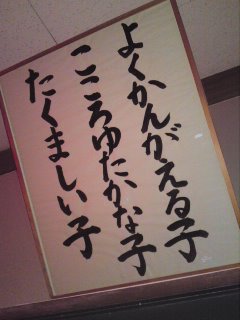 よくかんがえる子
こころゆたかな子
たくましい子